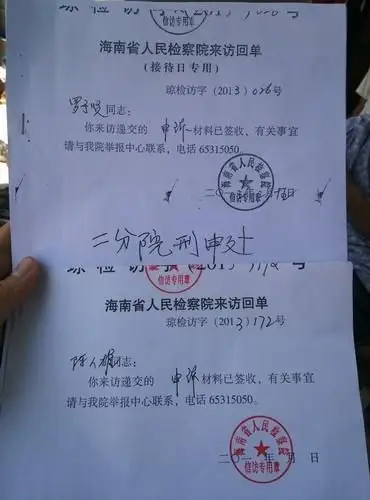 信访专用章
海南省人民检察院来访回单
(接待日专用)
琼检访字(2013)026号
同志:
你来访递交的 申诉 材料已签收,有关事宜
请与我院举报中心联系,电话65315050。
海南省人民检察院
信访专用章
二分院刑申处
信访专用章
海南省人民检察院来访回单
琼检访字(2013)172号
同志:
你来访递交的 申诉 材料已签收,有关事宜
请与我院举报中心联系,电话65315050。
海南省人民检察院
信访专用章
二〇一 年 月 日